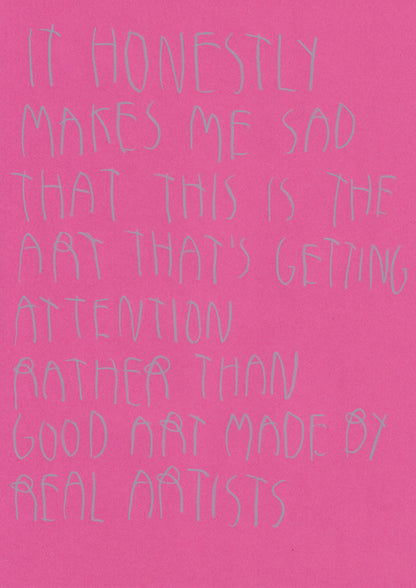 IT HONESTLY
MAKES ME SAD
THAT THIS IS THE
ART THAT'S GETTING
ATTENTION
RATHER THAN
GOOD ART MADE BY
REAL ARTISTS